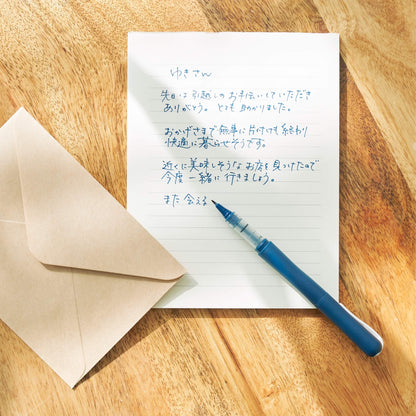 ゆきさん
先日は引越しのお手伝いしていただき
ありがとう。とても助かりました。
おかげさまで無事に片付けも終わり
快適に暮らせそうです。
近くに美味しそうなお店を見つけたので
今度一緒に行きましょう。
また会える